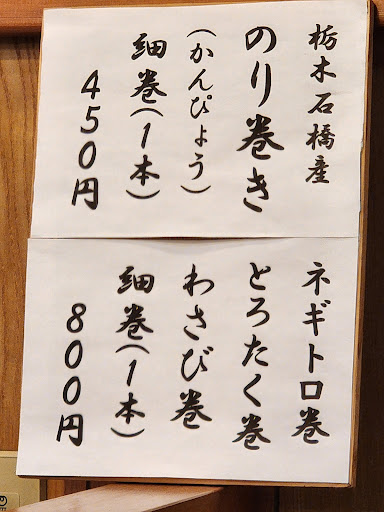 栃木石橋産
のり巻き
（かんぴょう）
細巻（1本）
450円
ネギトロ巻
とろたく巻
わさび巻
細巻（1本）
800円